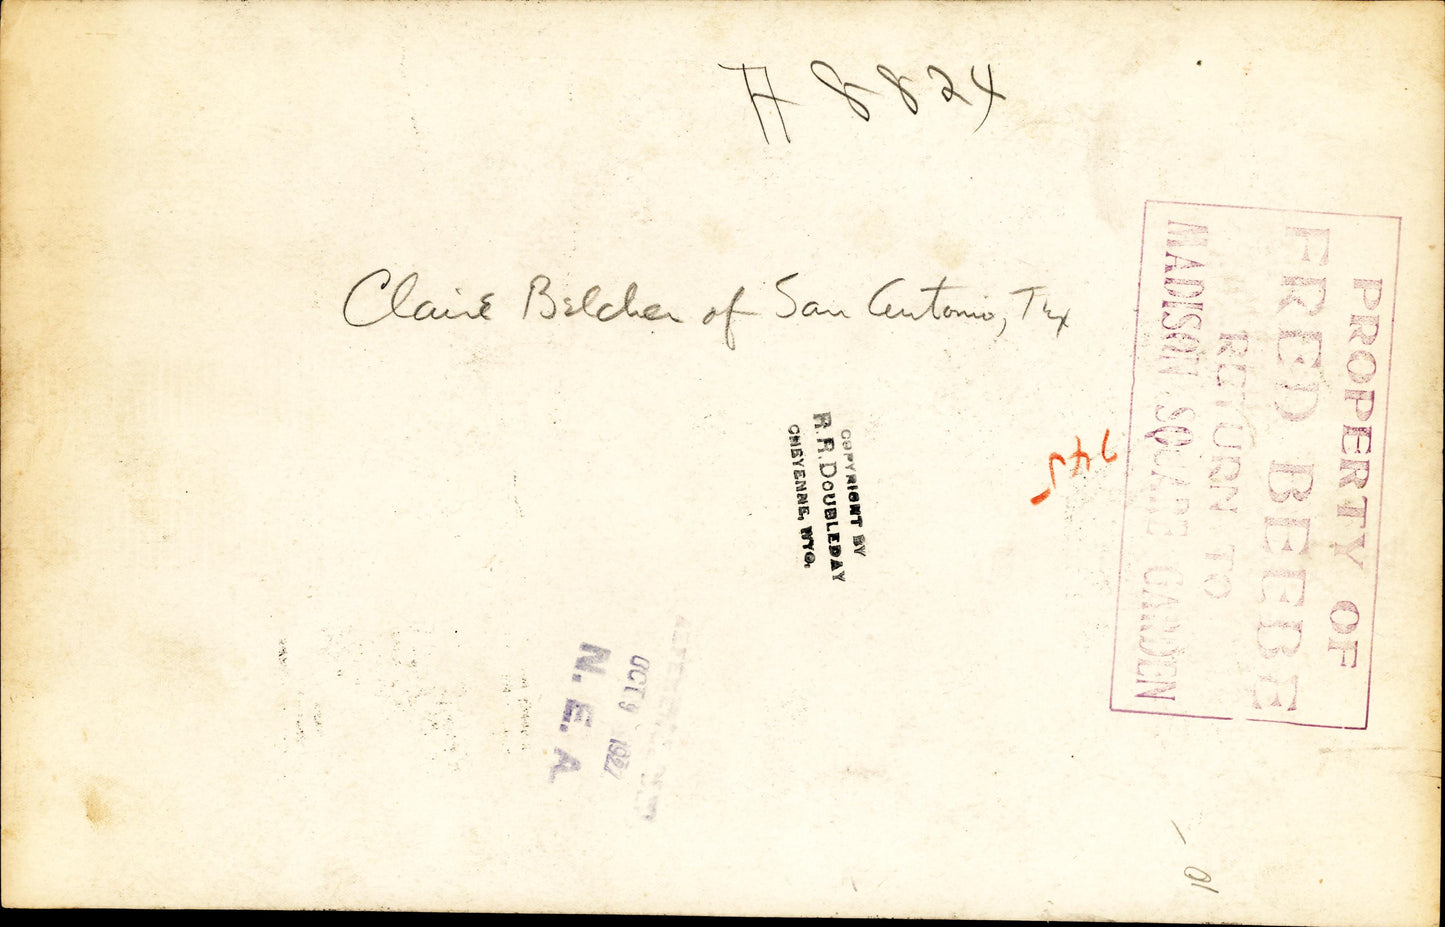 H 8824
Claire Belcher of San Antonio, Tex
PROPERTY OF
FRED BEEBE
RETURN TO
MADISON SQUARE GARDEN
COPYRIGHT BY
R.R. DOUBLEDAY
CHEYENNE, WYO.
OCT 9 1927
N. E. A.